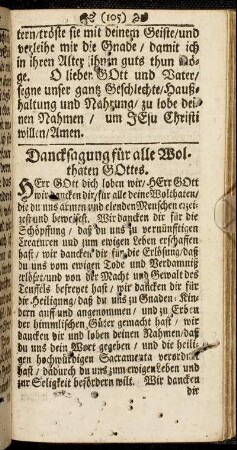 (105)
tern/tröste sie mit deinem Geiste/und
verleihe mir die Gnade/ damit ich
in ihren Alter ihnen guts thun mö-
ge. O lieber GOtt und Vater/
segne unser gantz Geschlechte/Hauß-
haltung und Nahrung/ zu lobe dei-
nen Nahmen/ um JEsu Christi
willen/Amen.
Dancksagung für alle Wol-
thaten GOttes.
HErr GOtt dich loben wir/ HErr GOtt
wir dancken dir/ für alle deine Wolthaten/
die du uns armen und elenden Menschen erzei-
gest und beweisest. Wir dancken dir für die
Schöpffung/ daß du uns zu vernünfftigen
Creaturen und zum ewigen Leben erschaffen
hast/ wir dancken dir für die Erlösung/daß
du uns vom ewigen Tode und Verdamniß
erlöset/und von der Macht und Gewalt des
Teuffels befreyet hast/ wir dancken dir für
die Heiligung/daß du uns zu Gnaden-Kin-
dern auff und angenommen/ und zu Erben
der himmlischen Güter gemacht hast/ wir
dancken dir und loben deinen Nahmen/daß
du uns dein Wort gegeben/ und die heili-
gen hochwürdigen Sacramenta verordnet
hast/ dadurch du uns zum ewigen Leben und
zur Seligkeit befördern wilt. Wir dancken
dir